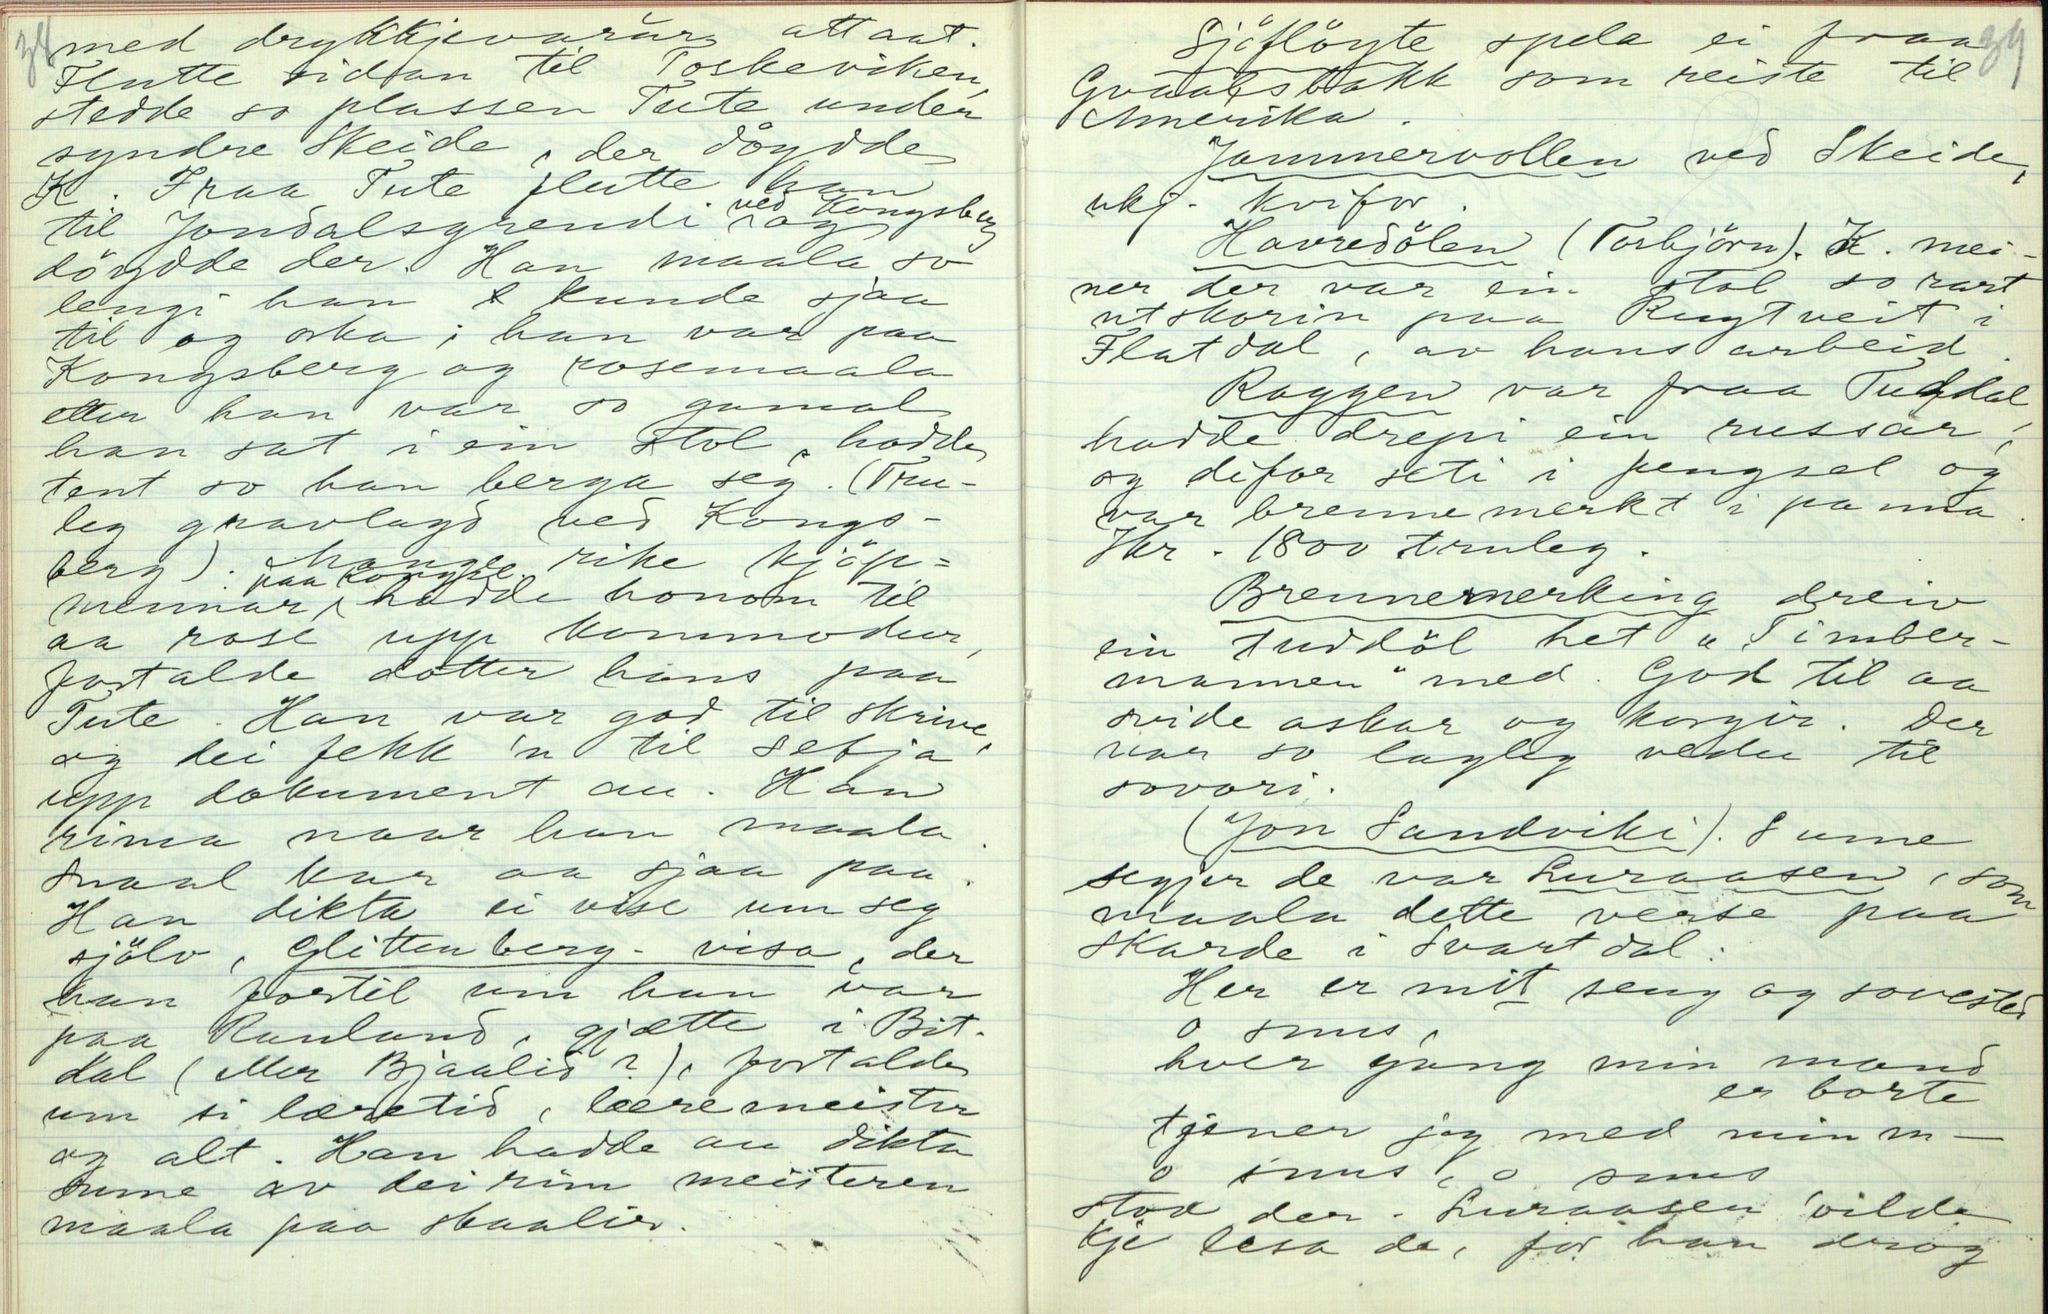 38
med drykkjevarur attaat.
Flutte sidan til Toskeviken,
stedde so plassen Tute under
syndre Skeide, der döydde
K. Fraa Tute flutte han
til Jondalsgrendi ved Kongsberg og
döydde der. Han maala so
lengi han kunde sjaa
til og orka; han var paa
Kongsberg og rosemaala
etter han var so gamal
han sat i ein stol, hadde
tent so han berga seg. (Tru-
leg gravlagd ved Kongs-
berg). Mange rike kjöp-
mennar paa Kongsb. hadde honom til
aa rose upp kommodur,
fortalde dotter hans paa
Tute. Han var god til skrive,
og dei fekk 'n til setja
upp dokument au. Han
rima naar han maala.
Snaal kar aa sjaa paa.
Han dikta ei vise um seg
sjölv, Glittenberg-visa, der
han fortel um han var
paa Rauland, gjætte i Bit-
dal (eller Bjaalid?), fortalde
um si læretid, læremeister
og alt. Han hadde au dikta
sume av dei rim meisteren
maala paa skaalir.
39
Sjöflöyte spela ei fraa
Gvaalsbakk som reiste til
Amerika.
Jammervollen ved Skeide,
ukj. kvifor.
Havredölen (Torbjörn). K. mei-
ner der var ein stol so rart
utskorin paa Rugtveit i
Flatdal, av hans arbeid.
Raggen var fraa Tuddal,
hadde drepi ein russar,
og difor seti i fengsel og
var brennemerkt i panna.
Ikr. 1800 truleg.
Brennemerking dreiv
ein tuddöl het "Timber-
mannen" med. God til aa
svide askar og korgir. Der
var so lagleg vedu til
sovori.
(Jon Sandviki). Sume
segjer de var Luraasen, som
maala dette verse paa
Skarde i Svartdal:
Her er mit seng og sovested
o snus,
hver gang min mand
er borte
tjener jeg med min m—
o snus, o snus
stod der. Luraasen vilde
kje lesa de, for han drog